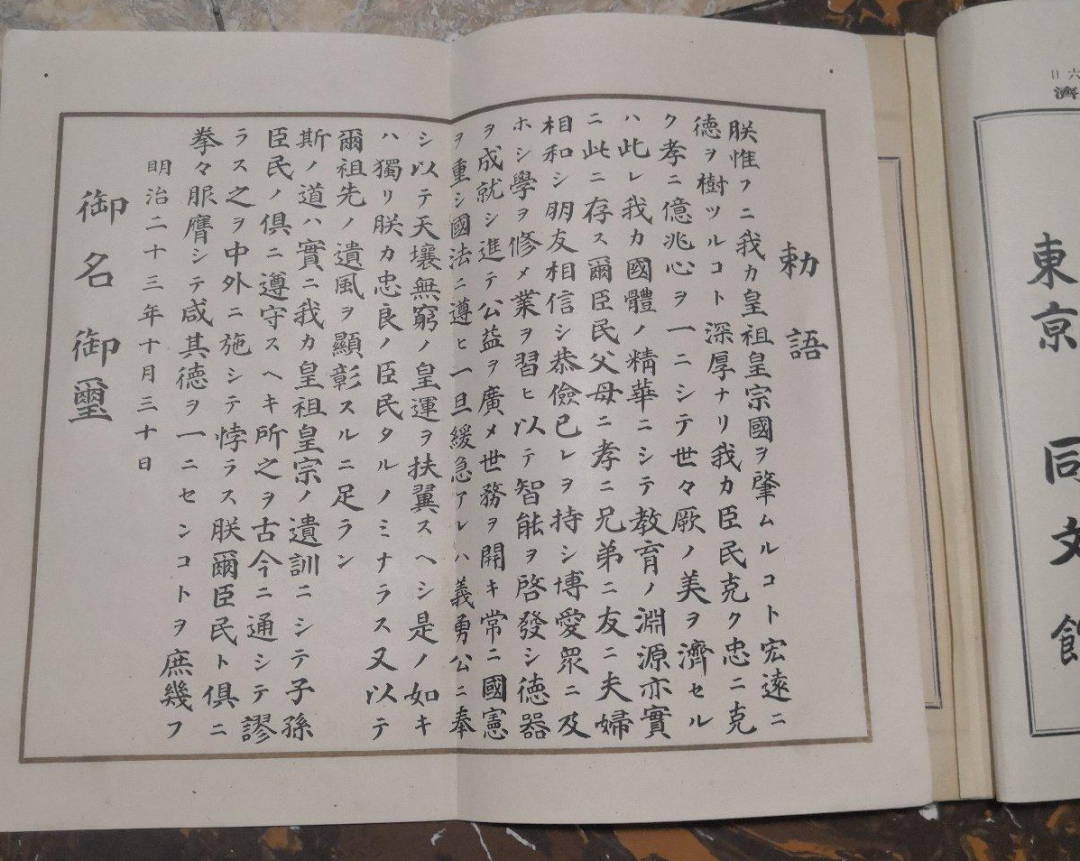 六日
濟
東京 同文館
勅語
朕惟フニ我カ皇祖皇宗國ヲ肇ムルコト宏遠ニ
德ヲ樹ツルコト深厚ナリ我カ臣民克ク忠ニ克
ク孝ニ億兆心ヲ一ニシテ世々厥ノ美ヲ濟セル
ハ此レ我カ國體ノ精華ニシテ教育ノ淵源亦實
ニ此ニ存ス爾臣民父母ニ孝ニ兄弟ニ友ニ夫婦
相和シ朋友相信シ恭儉己レヲ持シ博愛衆ニ及
ホシ學ヲ修メ業ヲ習ヒ以テ智能ヲ啓發シ德器
ヲ成就シ進テ公益ヲ廣メ世務ヲ開キ常ニ國憲
ヲ重シ國法ニ遵ヒ一旦緩急アレハ義勇公ニ奉
シ以テ天壤無窮ノ皇運ヲ扶翼スヘシ是ノ如キ
ハ獨リ朕カ忠良ノ臣民タルノミナラス又以テ
爾祖先ノ遺風ヲ顯彰スルニ足ラン
斯ノ道ハ實ニ我カ皇祖皇宗ノ遺訓ニシテ子孫
臣民ノ俱ニ遵守スヘキ所之ヲ古今ニ通シテ謬
ラス之ヲ中外ニ施シテ悖ラス朕爾臣民ト俱ニ
拳々服膺シテ咸其德ヲ一ニセンコトヲ庶幾フ
明治二十三年十月三十日
御名御璽